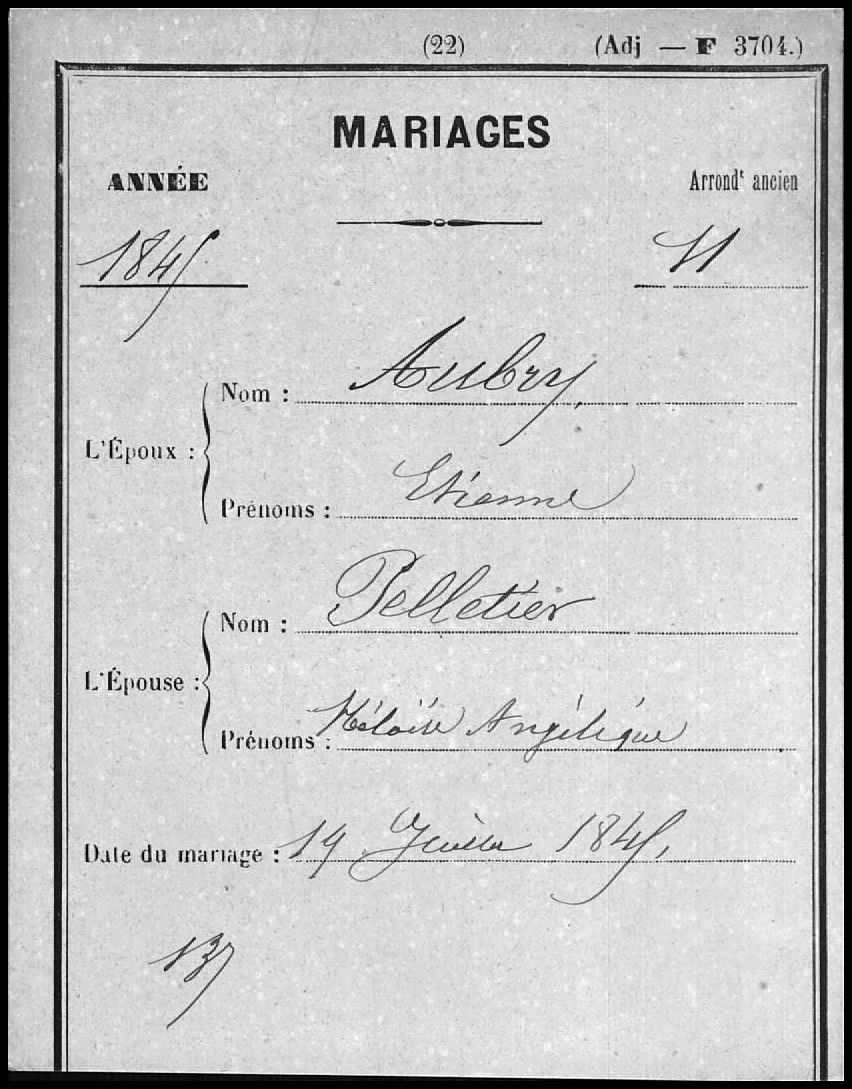 (22) (Adj — F 3704.)
MARIAGES
ANNÉE Arrondt ancien
1845 11
L'Époux :
Nom : Aubry
Prénoms : Etienne
L'Épouse :
Nom : Pelletier
Prénoms : Héloïse Angélique
Date du mariage : 19 Juillet 1845,